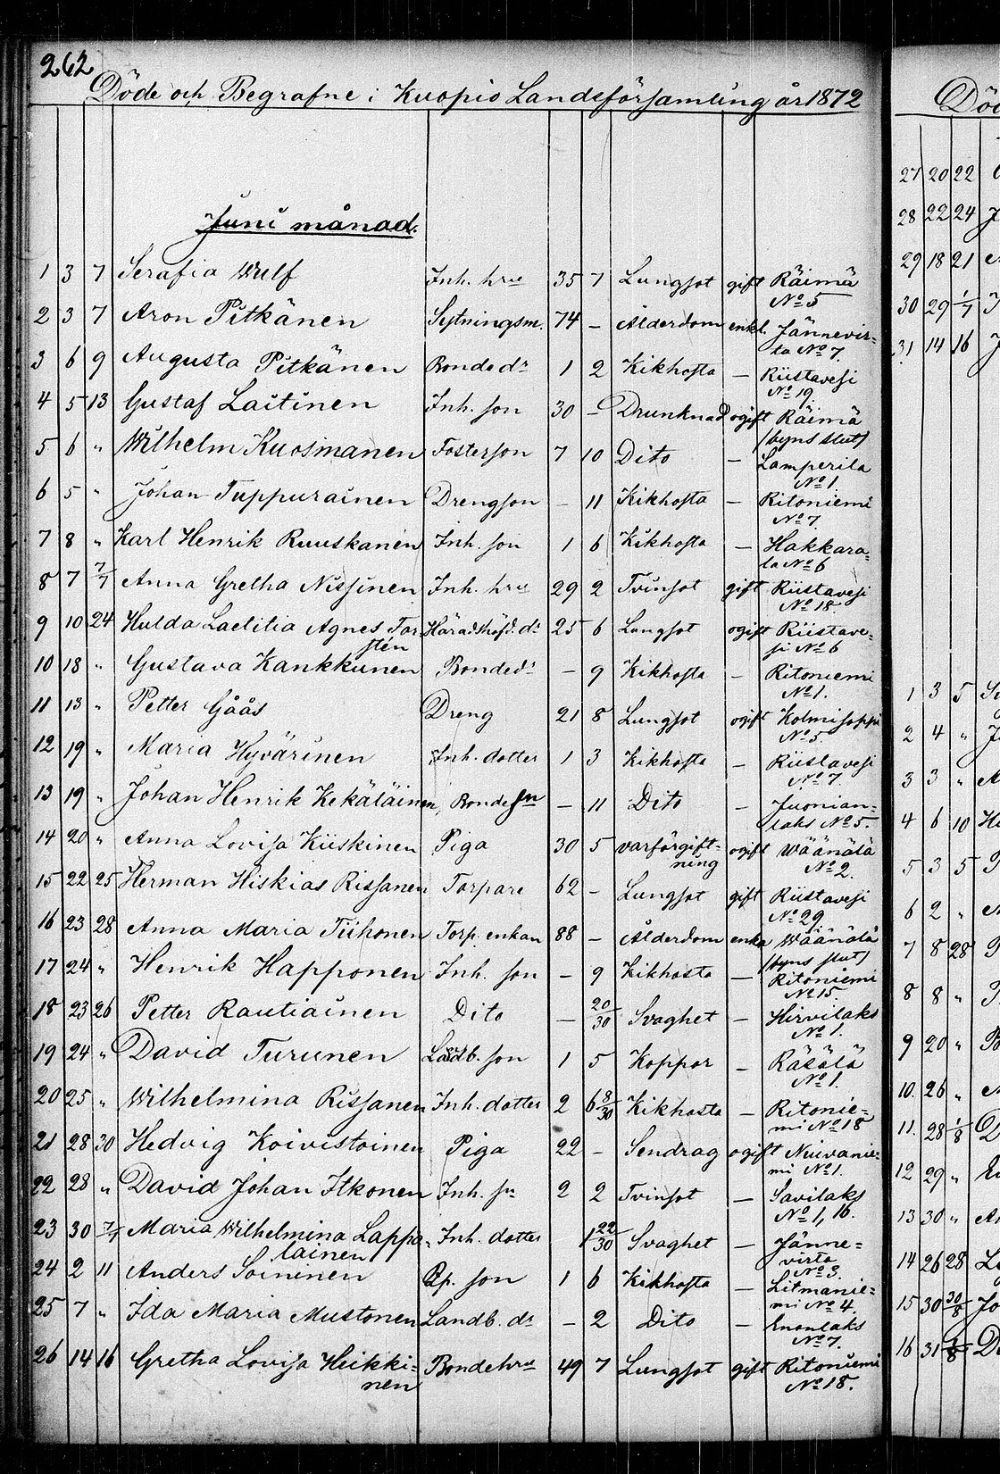 262
Döde och Begrafne i Kuopio Landsförsamling år 1872
Juni månad.
1 3 7 Serafia Wulf Inh. hru 35 7 Lungsot gift Räimä
№ 5
2 3 7 Aron Pitkänen Sytningsm. 74 - Ålderdom enkl. Jännevir=
ta № 7.
3 6 9 Augusta Pitkänen Bonded:r 1 2 Kikhosta — Riistavesi
№ 19.
4 5 13 Gustaf Laitinen Inh. son 30 - Drunknad ogift Räimä
(byns slut)
5 6 " Wilhelm Kuosmanen Fosterson 7 10 Dito — Lamperila
№ 1.
6 5 " Johan Tuppurainen Drengson - 11 Kikhosta — Ritoniemi
№ 7.
7 8 " Karl Henrik Ruuskanen Inh. son 1 6 Kikhosta — Hakkara=
la № 6
8 7 7/7 Anna Gretha Nissinen Inh. hru 29 2 Tvinsot gift Riistavesi
№ 18.
9 10 24 Hulda Laetitia Agnes Tor Häradshöfd. d:r 25 6 Lungsot ogift Riistave=
stén si № 6
10 18 " Gustava Kankkunen Bonded:r - 9 Kikhosta — Ritoniemi
№ 1.
11 13 " Petter Gåås Dreng 21 8 Lungsot ogift Kolmisoppi
№ 5.
12 19 " Maria Hyvärinen Inh. dotter 1 3 Kikhosta — Riistavesi
№ 7.
13 19 " Johan Henrik Kekäläinen Bonde sn - 11 Dito — Juonian=
laks № 5.
14 20 " Anna Lovisa Kiiskinen Piga 30 5 varförgift= ogift Wäänälä
ning № 2.
15 22 25 Herman Hiskias Rissanen Torpare 62 - Lungsot gift Riistavesi
№ 29.
16 23 28 Anna Maria Tiihonen Torp. enkan 88 - Ålderdom enka Wäänälä
(byns slut)
17 24 " Henrik Happonen Inh. son - 9 Kikhosta — Ritoniemi
№ 15.
18 23 26 Petter Rautiainen Dito — 20/30 Svaghet — Hirvilaks
№ 1.
19 24 " David Turunen Landb. son 1 5 Koppor — Räsälä
№ 1.
20 25 " Wilhelmina Rissanen Inh. dotter 2 6 8/30 Kikhosta — Ritonie=
mi № 18
21 28 30 Hedvig Koivistoinen Piga 22 - Sendrag ogift Niuvanie=
mi № 1.
22 28 " David Johan Itkonen Inh. sn 2 2 Tvinsot — Savilaks
№ 1, 16.
23 30 7/7 Maria Wilhelmina Lappa= Inh. dotter 1 22/30 Svaghet — Jänne=
lainen virta
№ 3.
24 2 11 Anders Soininen son 1 6 Kikhosta — Litmanie=
mi № 4.
25 7 " Ida Maria Mustonen Landb. d:r - 2 Dito — Enonlaks
№ 7.
26 14 16 Gretha Lovisa Heikki= Bondehru 49 7 Lungsot gift Ritoniemi
nen № 18.
Död
27 20 22
28 22 24 J
29 18 21
30 29 1/7
31 14 16
1 3 5
2 4 "
3 3 "
4 6 10
5 3 5
6 2 "
7 8 28
8 8 "
9 20 "
10. 26 "
11. 28 1/8
12 29 "
13 30 "
14 26 28
15 30 30/8 Jo
16 31